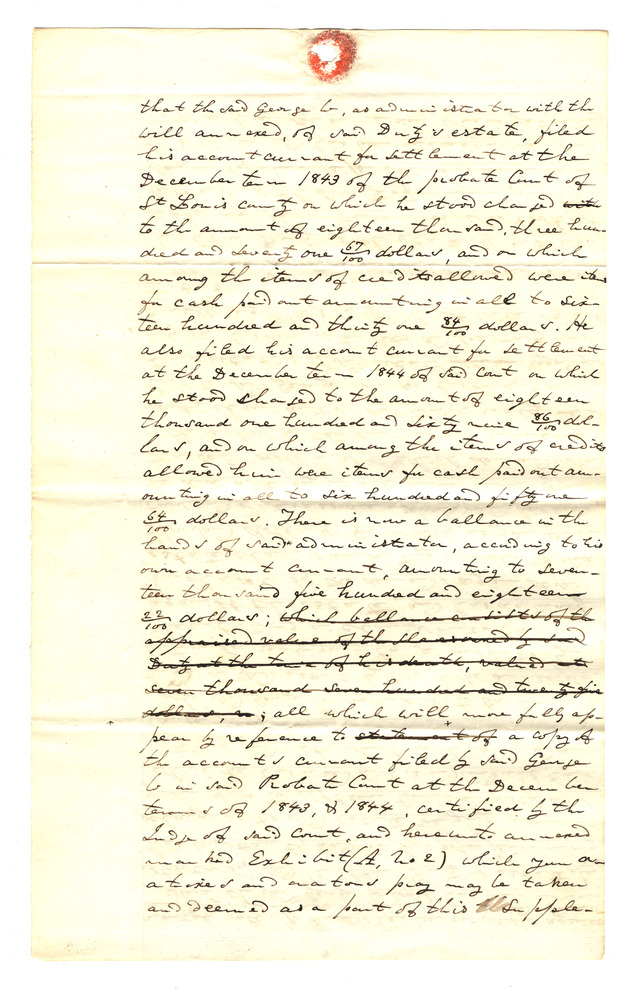 that the said George C, as administrator with the
will annexed, of said Duty's estate, filed
his account currant for settlement at the
December term 1843 of the probate Court of
St Louis county on which he stood charged with
to the amount of eighteen thousand, three hun-
dred and seventy one 67/100 dollars, and on which
among the items of credits allowed were items
for cash paid out amounting in all to six-
teen hundred and thirty one 84/100 dollars. He
also filed his account currant for settlement
at the December term 1844 of said Court on which
he stood charged to the amount of eighteen
thousand one hundred and sixty nine 86/100 dol-
lars, and on which among the items of credits
allowed him were items for cash paid out am-
ounting in all to six hundred and fifty one
64/100 dollars. There is now a ballance in the
hands of said administrator, according to his
own account currant, amounting to seven-
teen thousand five hundred and eighteen
22/100 dollars; which ballance consists of the
appraised value of the slaves owned by said
Duty at the time of his death, valued at
seven thousand seven hundred and twenty five
dollars, ; all which will more fully ap-
pear by reference to statement of a copy of
the accounts currant filed by said George
C in said Probate Court at the December
terms of 1843, & 1844, certified by the
Judge of said Court, and hereunto annexed
marked Exhibit (A, No 2) which your or-
atrixes and orators pray may be taken
and deemed as a part of this Supple-